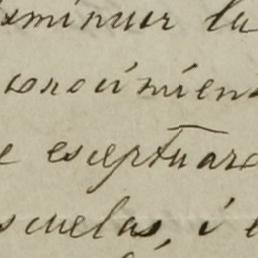 sminuir la
conocimien
e esceptuar
scuelas, i e